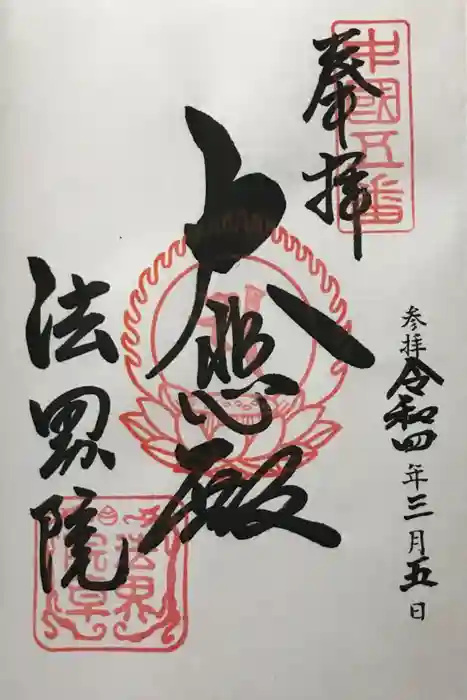 参拝令和四年三月五日
奉拝
中國五番
大悲殿
法界院